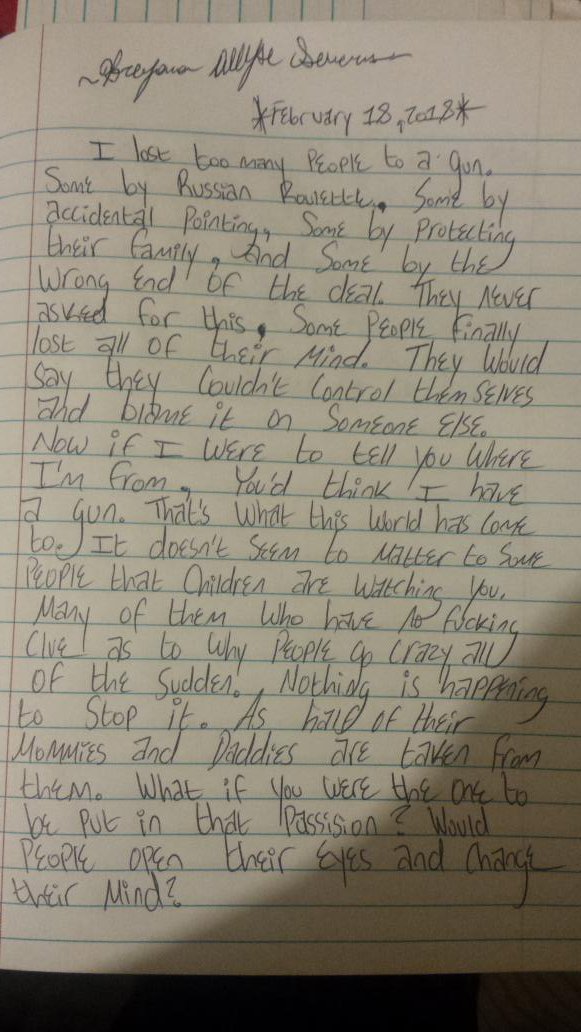 *February 18, 2018*
I lost too many People to a gun.
Some by Russian Roulette. Some by
accidental Pointing, Some by Protecting
their family, and Some by the
Wrong End of the deal. They never
asked for this. Some People finally
lost all of their Mind. They Would
say they Couldn't Control themselves
and blame it on Someone Else.
Now if I were to tell you Where
I'm from, You'd think I have
a gun. That's What this World has Come
to. It doesn't Seem to Matter to Some
People that Children are Watching you.
Many of them who have no fucking
Clue as to why People go Crazy all
of the Sudden. Nothing is happening
to Stop it. As half of their
Mommies and Daddies are taken from
them. What if you were the one to
be Put in that Passision? Would
People open their Eyes and Change
their Mind?